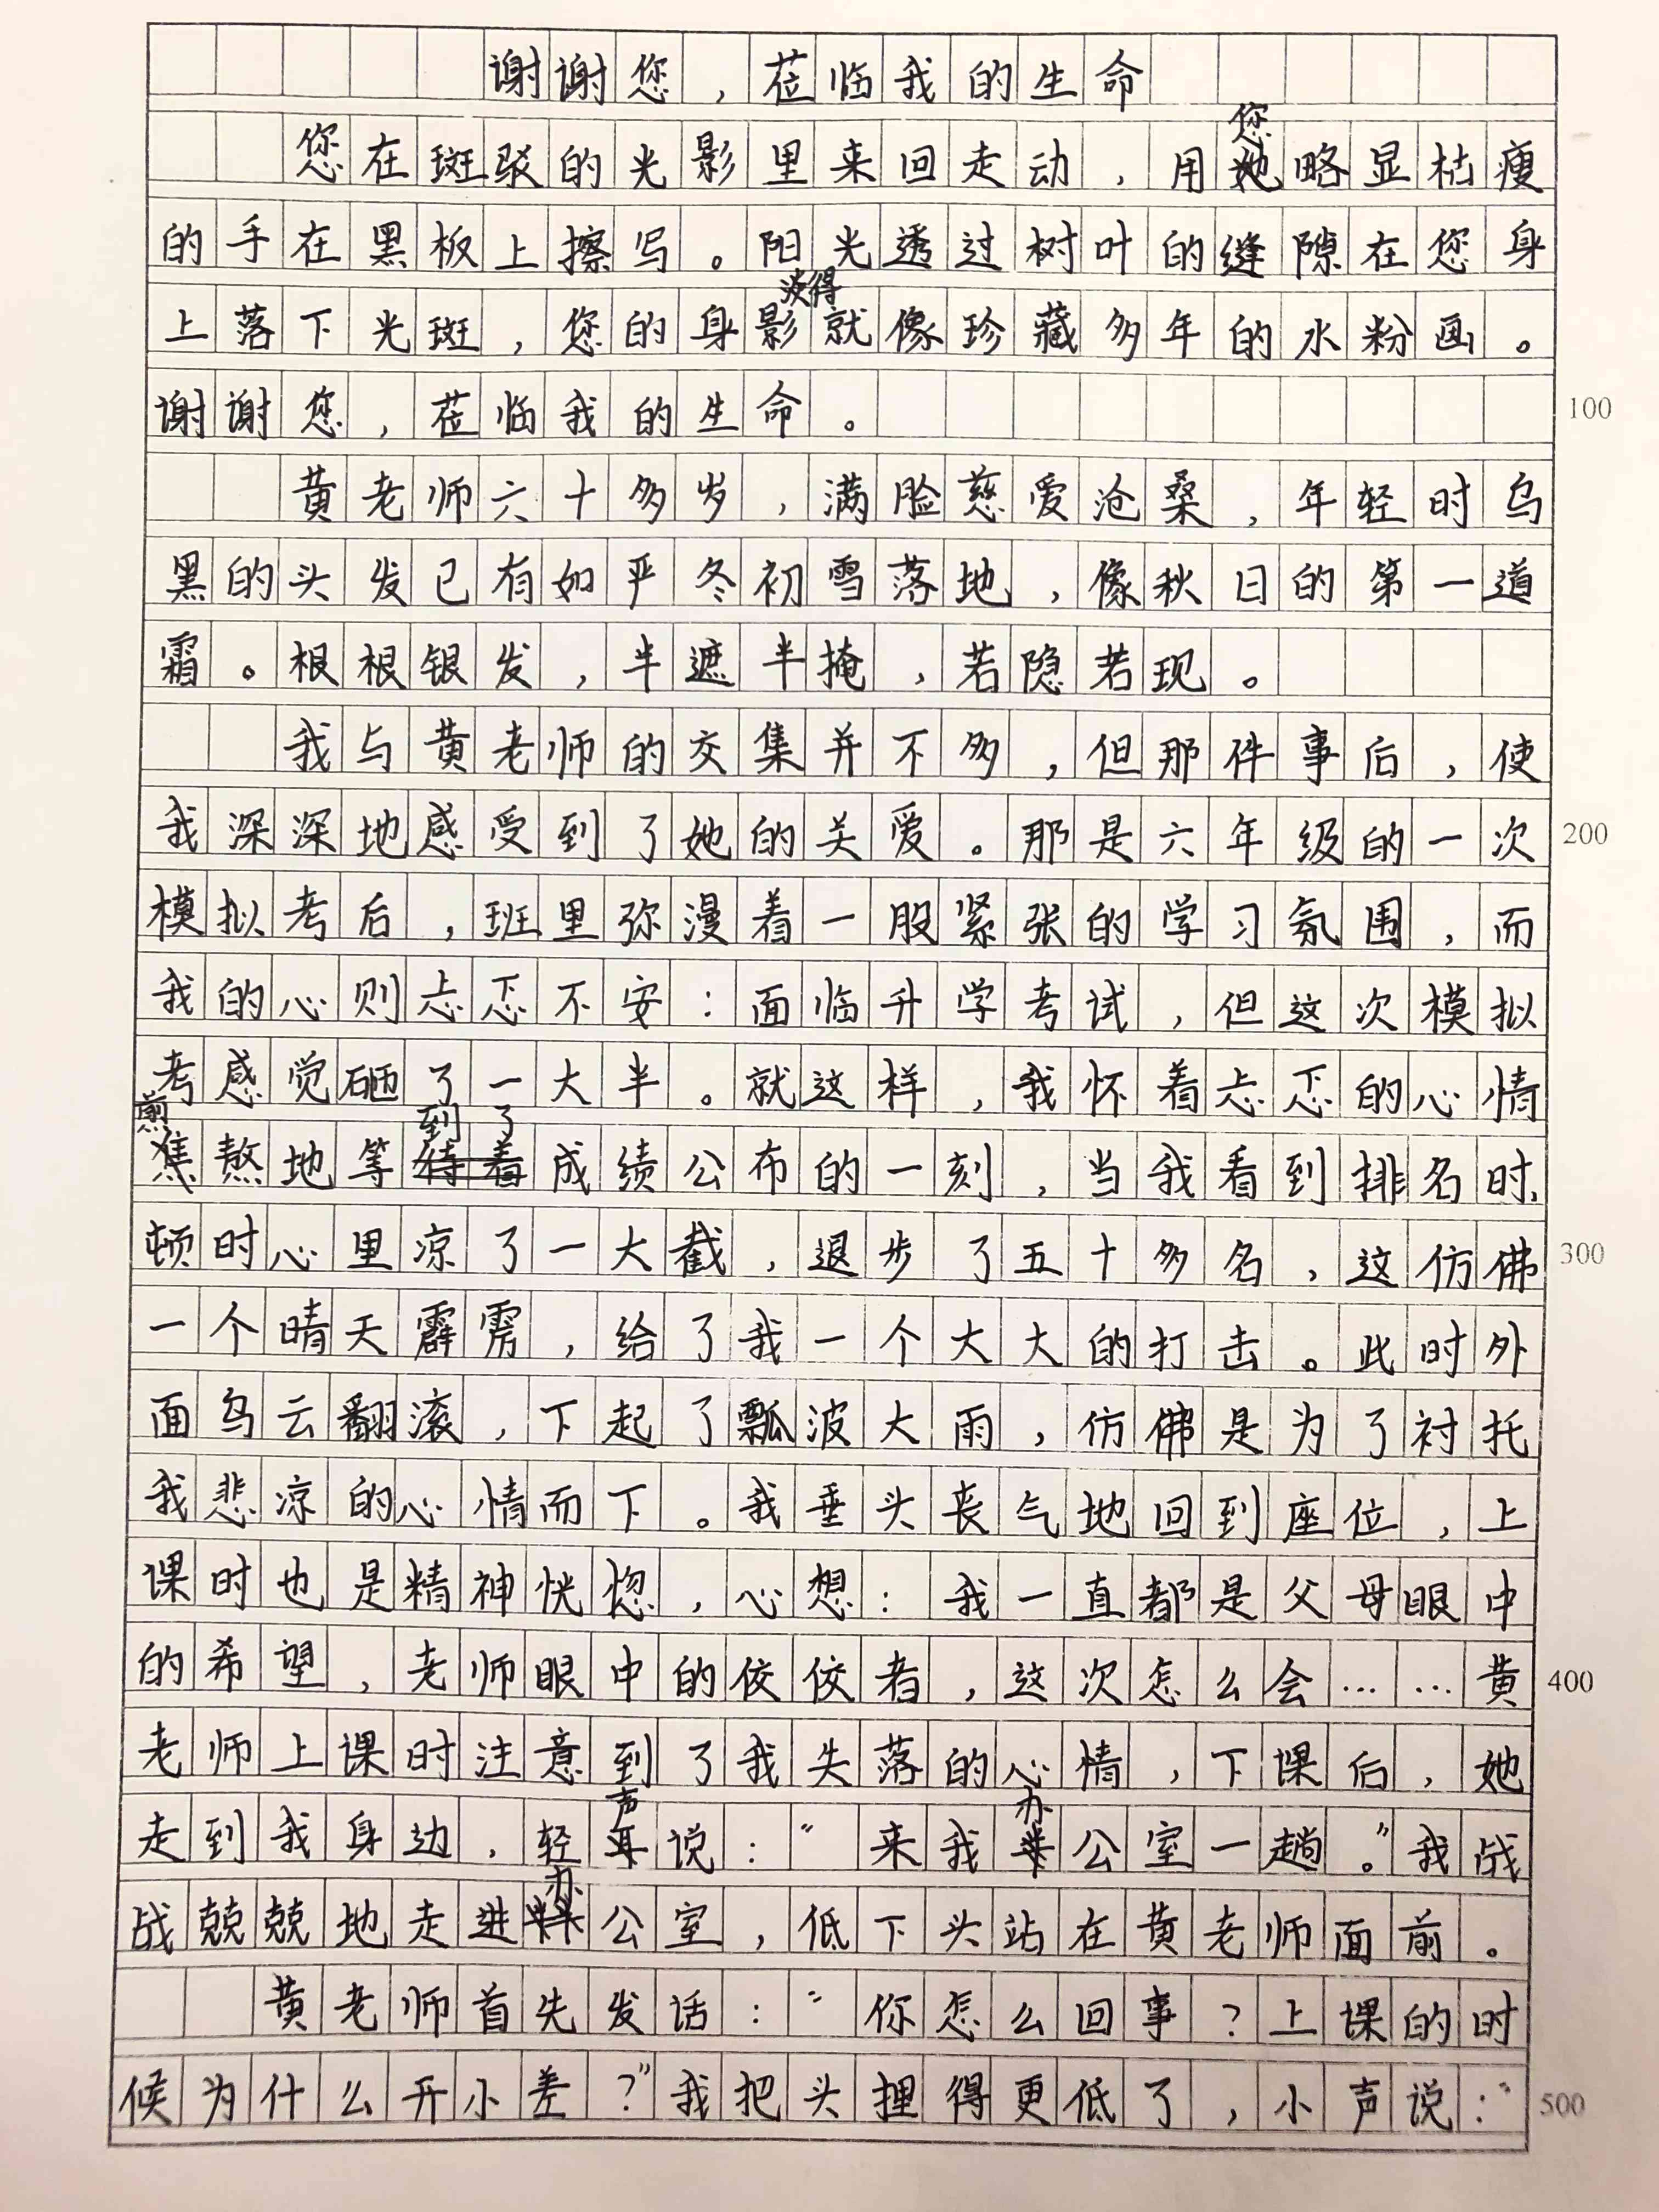 谢谢您，莅临我的生命
您在斑驳的光影里来回走动，用您略显枯瘦
的手在黑板上擦写。阳光透过树叶的缝隙在您身
上落下光斑，您的身影淡得就像珍藏多年的水粉画。
谢谢您，莅临我的生命。
100
黄老师六十多岁，满脸慈爱沧桑，年轻时乌
黑的头发已有如严冬初雪落地，像秋日的第一道
霜。根根银发，半遮半掩，若隐若现。
我与黄老师的交集并不多，但那件事后，使
我深深地感受到了她的关爱。那是六年级的一次
200
模拟考后，班里弥漫着一股紧张的学习氛围，而
我的心则忐忑不安：面临升学考试，但这次模拟
考感觉砸了一大半。就这样，我怀着忐忑的心情
煎熬地等到了成绩公布的一刻，当我看到排名时，
顿时心里凉了一大截，退步了五十多名，这仿佛
300
一个晴天霹雳，给了我一个大大的打击。此时外
面乌云翻滚，下起了瓢波大雨，仿佛是为了衬托
我悲凉的心情而下。我垂头丧气地回到座位，上
课时也是精神恍惚，心想：我一直都是父母眼中
的希望，老师眼中的佼佼者，这次怎么会……黄
400
老师上课时注意到了我失落的心情，下课后，她
走到我身边，轻声说：“来我办公室一趟。”我战
战兢兢地走进办公室，低下头站在黄老师面前。
黄老师首先发话：“你怎么回事？上课的时
候为什么开小差？”我把头埋得更低了，小声说：“
500